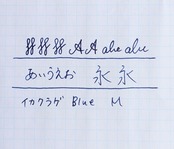 A A abc abc
あいうえお 永 永
イカクラゲ Blue M